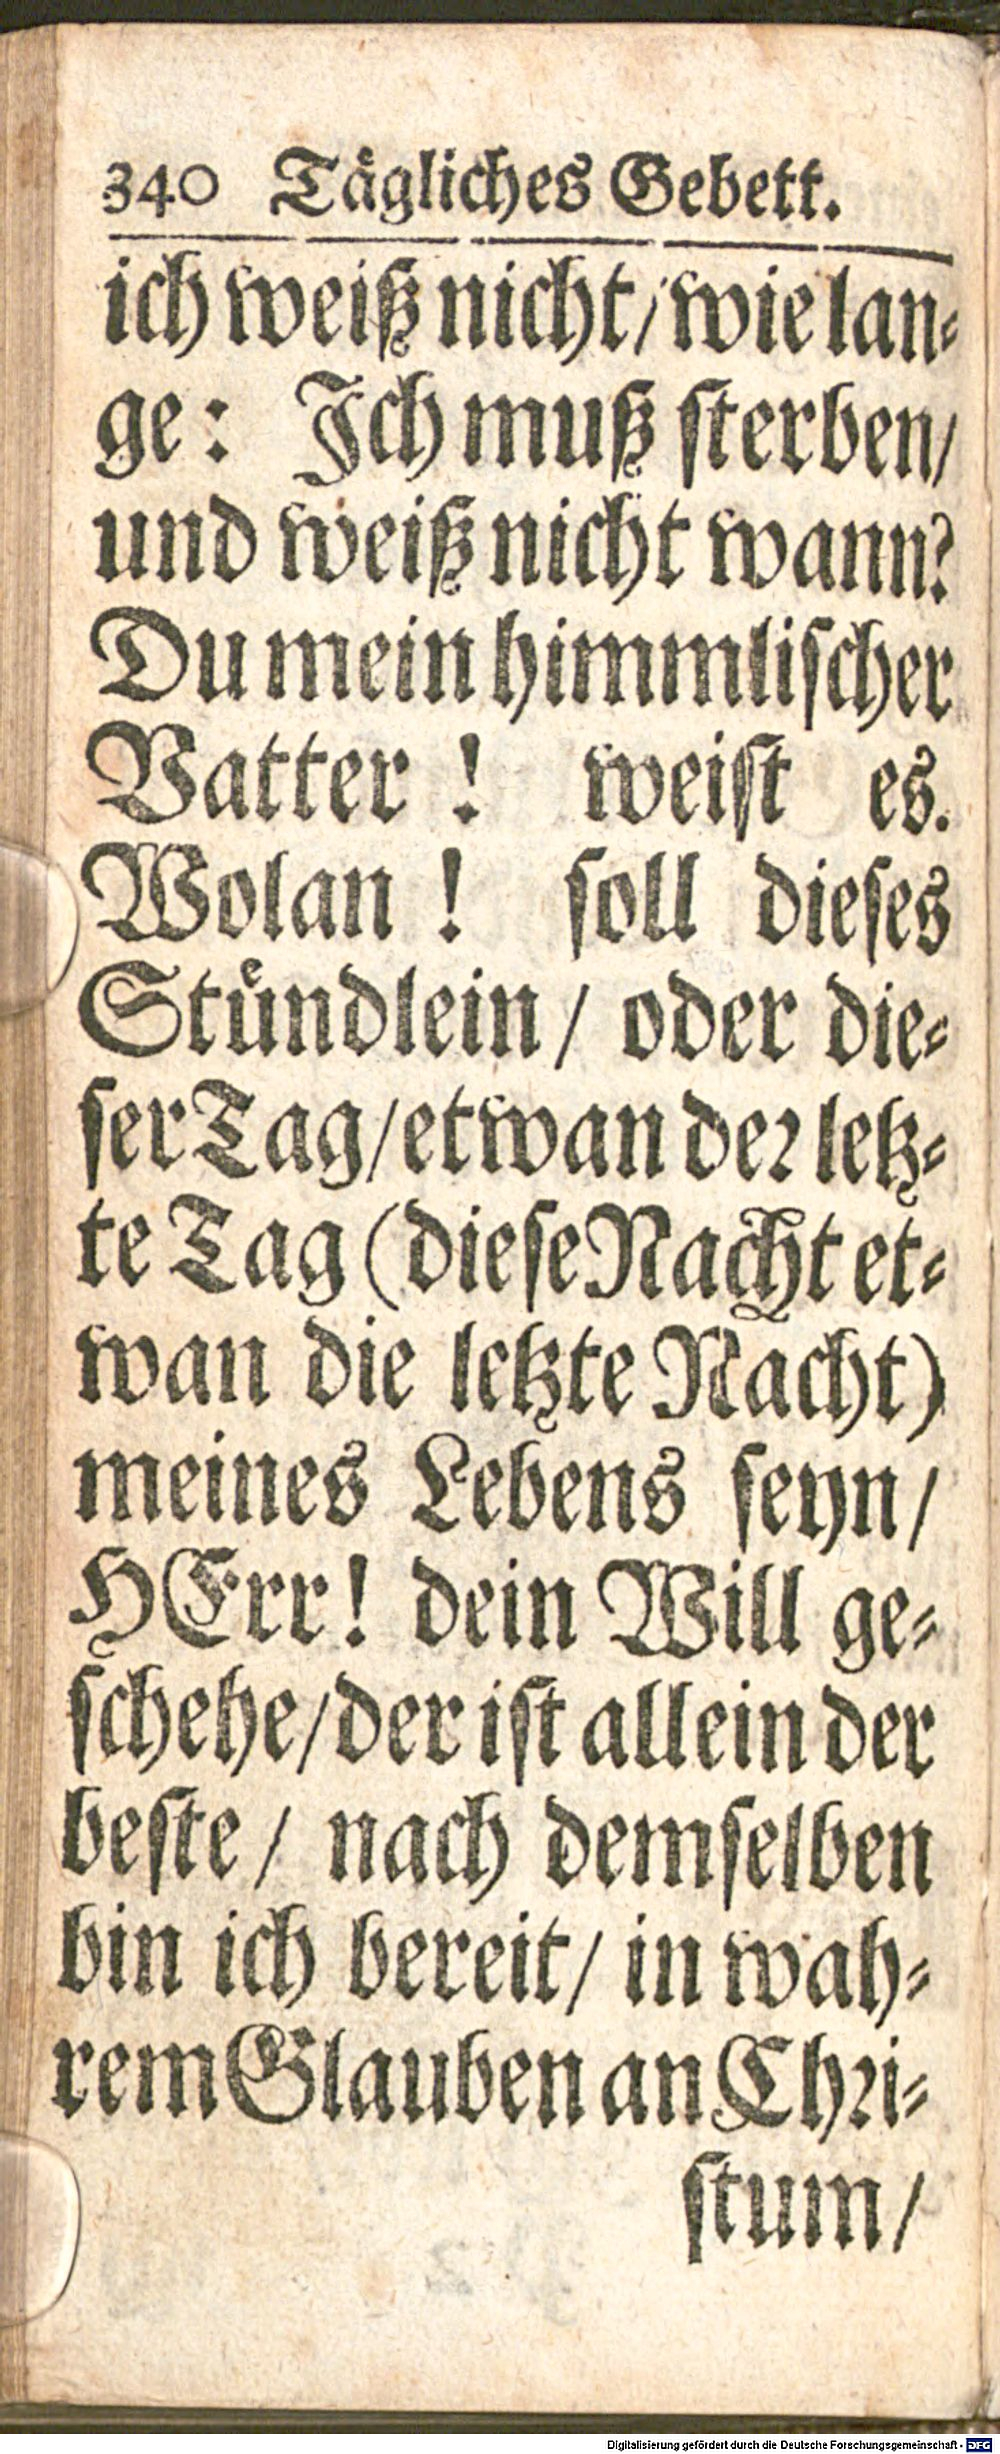 340 Tägliches Gebett.
ich weiß nicht/ wie lan-
ge: Ich muß sterben/
und weiß nicht wann?
Du mein himmlischer
Vatter! weist es.
Wolan! soll dieses
Stündlein/ oder die-
ser Tag/ etwan der letz-
te Tag (diese Nacht et-
wan die letzte Nacht)
meines Lebens seyn/
HErr! dein Will ge-
schehe/ der ist allein der
beste/ nach demselben
bin ich bereit/ in wah-
rem Glauben an Chri-
stum/
Digitalisierung gefördert durch die Deutsche Forschungsgemeinschaft - DFG